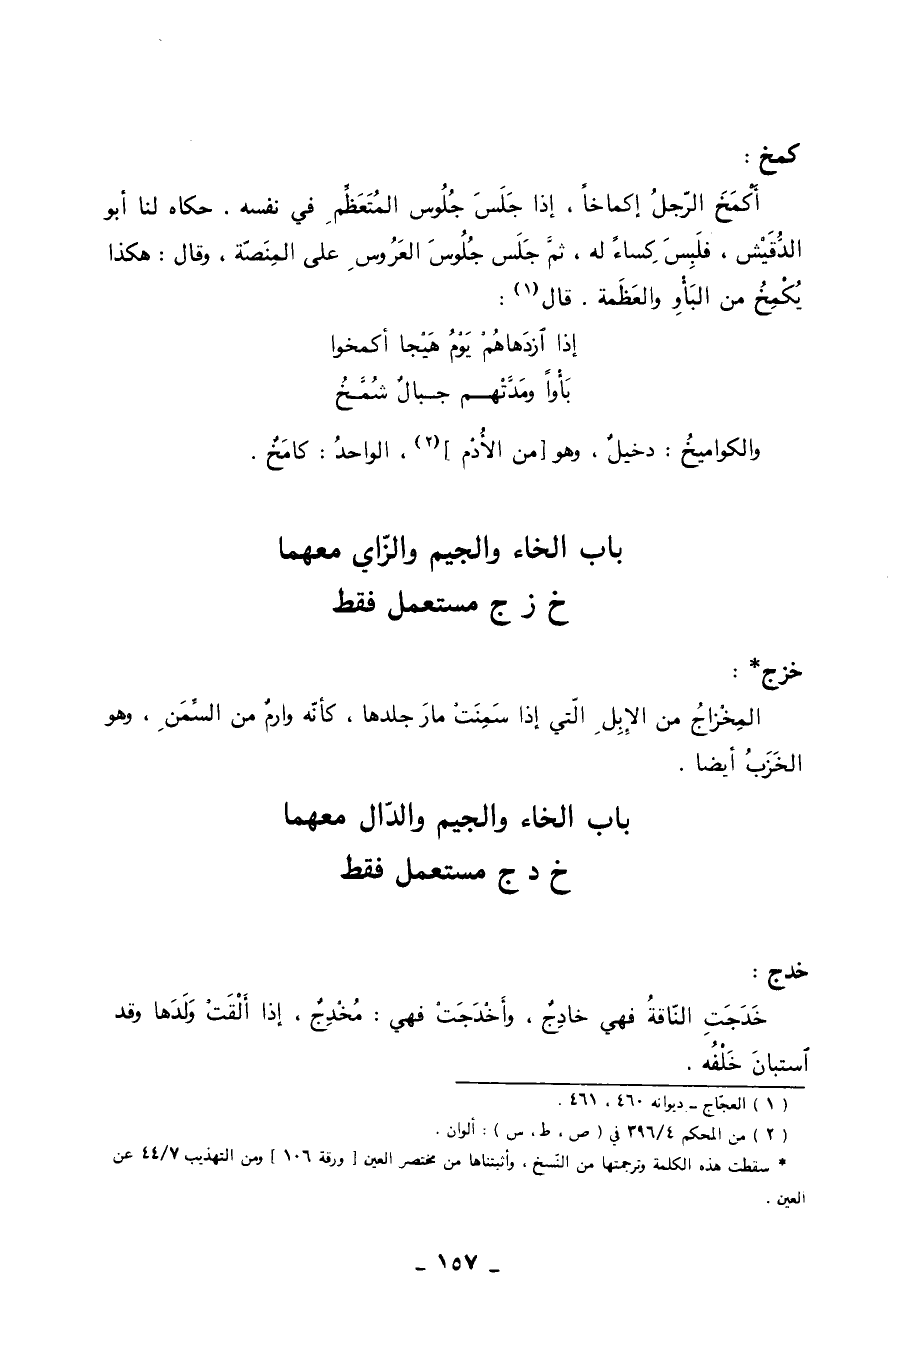 كمخ :
أَكْمَخَ الرّجلُ إكماخاً ، إذا جَلَسَ جُلُوس المُتَعَظِّمِ في نفسه . حكاه لنا أبو
الدُّقَيْش ، فلَبِسَ كِساءً له ، ثمَّ جَلَس جُلُوسَ العَرُوسِ على المِنَصّة ، وقال : هكذا
يُكْمِخُ من البَأْوِ والعَظَمة . قال(١) :
إذا ٱزدَهاهُمْ يَوْمُ هَيْجا أكمخوا
بَأْواً ومَدَّتْهـــم جــبالٌ شُمَّــخُ
والكواميخُ : دخيلٌ ، وهو [من الأُدْم ](٢) ، الواحدُ : كامَخٌ .
باب الخاء والجيم والزّاي معهما
خ ز ج مستعمل فقط
خزج* :
المِخْزاجُ من الإبِلِ الّتي إذا سَمِنَتْ مارَ جلدها ، كأنّه وارمٌ من السِّمَنِ ، وهو
الخَزَبُ أيضا .
باب الخاء والجيم والدّال معهما
خ د ج مستعمل فقط
خدج :
خَدَجَتِ النّاقةُ فهي خادِجٌ ، وأَخْدَجَتْ فهي : مُخْدِجٌ ، إذا أَلْقَتْ وَلَدَها وقد
ٱستبانَ خَلْقُه .
( ١ ) العجّاج ـ ديوانه ٤٦٠ ، ٤٦١ .
( ٢ ) من المحكم ٣٩٦/٤ في ( ص ، ط ، س ) : ألوان .
* سقطت هذه الكلمة وترجمتها من النّسخ ، وأثبتناها من مختصر العين [ ورقة ١٠٦ ] ومن التهذيب ٤٤/٧ عن
العين .
ـ ١٥٧ ـ